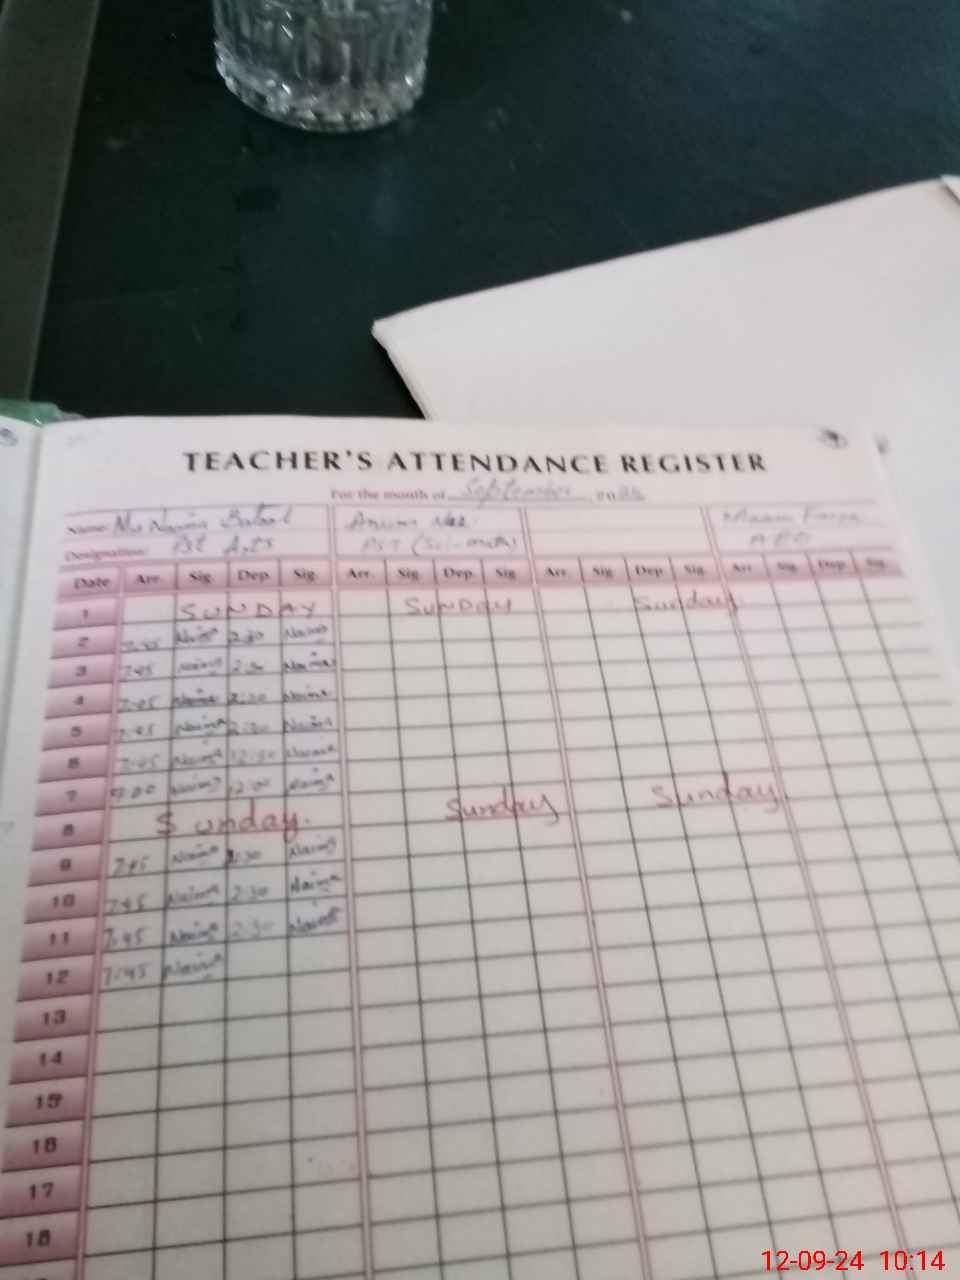 TEACHER'S ATTENDANCE REGISTER
For the month of September, 20
Name: Naima Batool Anum
Designation: PST Arts PST (Sci-math)
Date Arr. Sig. Dep. Sig. Arr. Sig. Dep. Sig. Arr. Sig. Dep. Sig. Arr. Sig. Dep. Sig.
1 SUNDAY SUNDAY Sunday
2 7:45 Naima 2:30 Naima
3 7:45 Naima 2:30 Naima
4 7:45 Naima 2:30 Naima
5 7:45 Naima 2:30 Naima
6 7:45 Naima 12:30 Naima
7 Naima 12:00 Naima
8 Sunday. Sunday Sunday
9 7:45 Naima 2:30 Naima
10 7:45 Naima 2:30 Naima
11 7:45 Naima 2:30 Naima
12 7:45 Naima
13
14
15
16
17
18
12-09-24 10:14